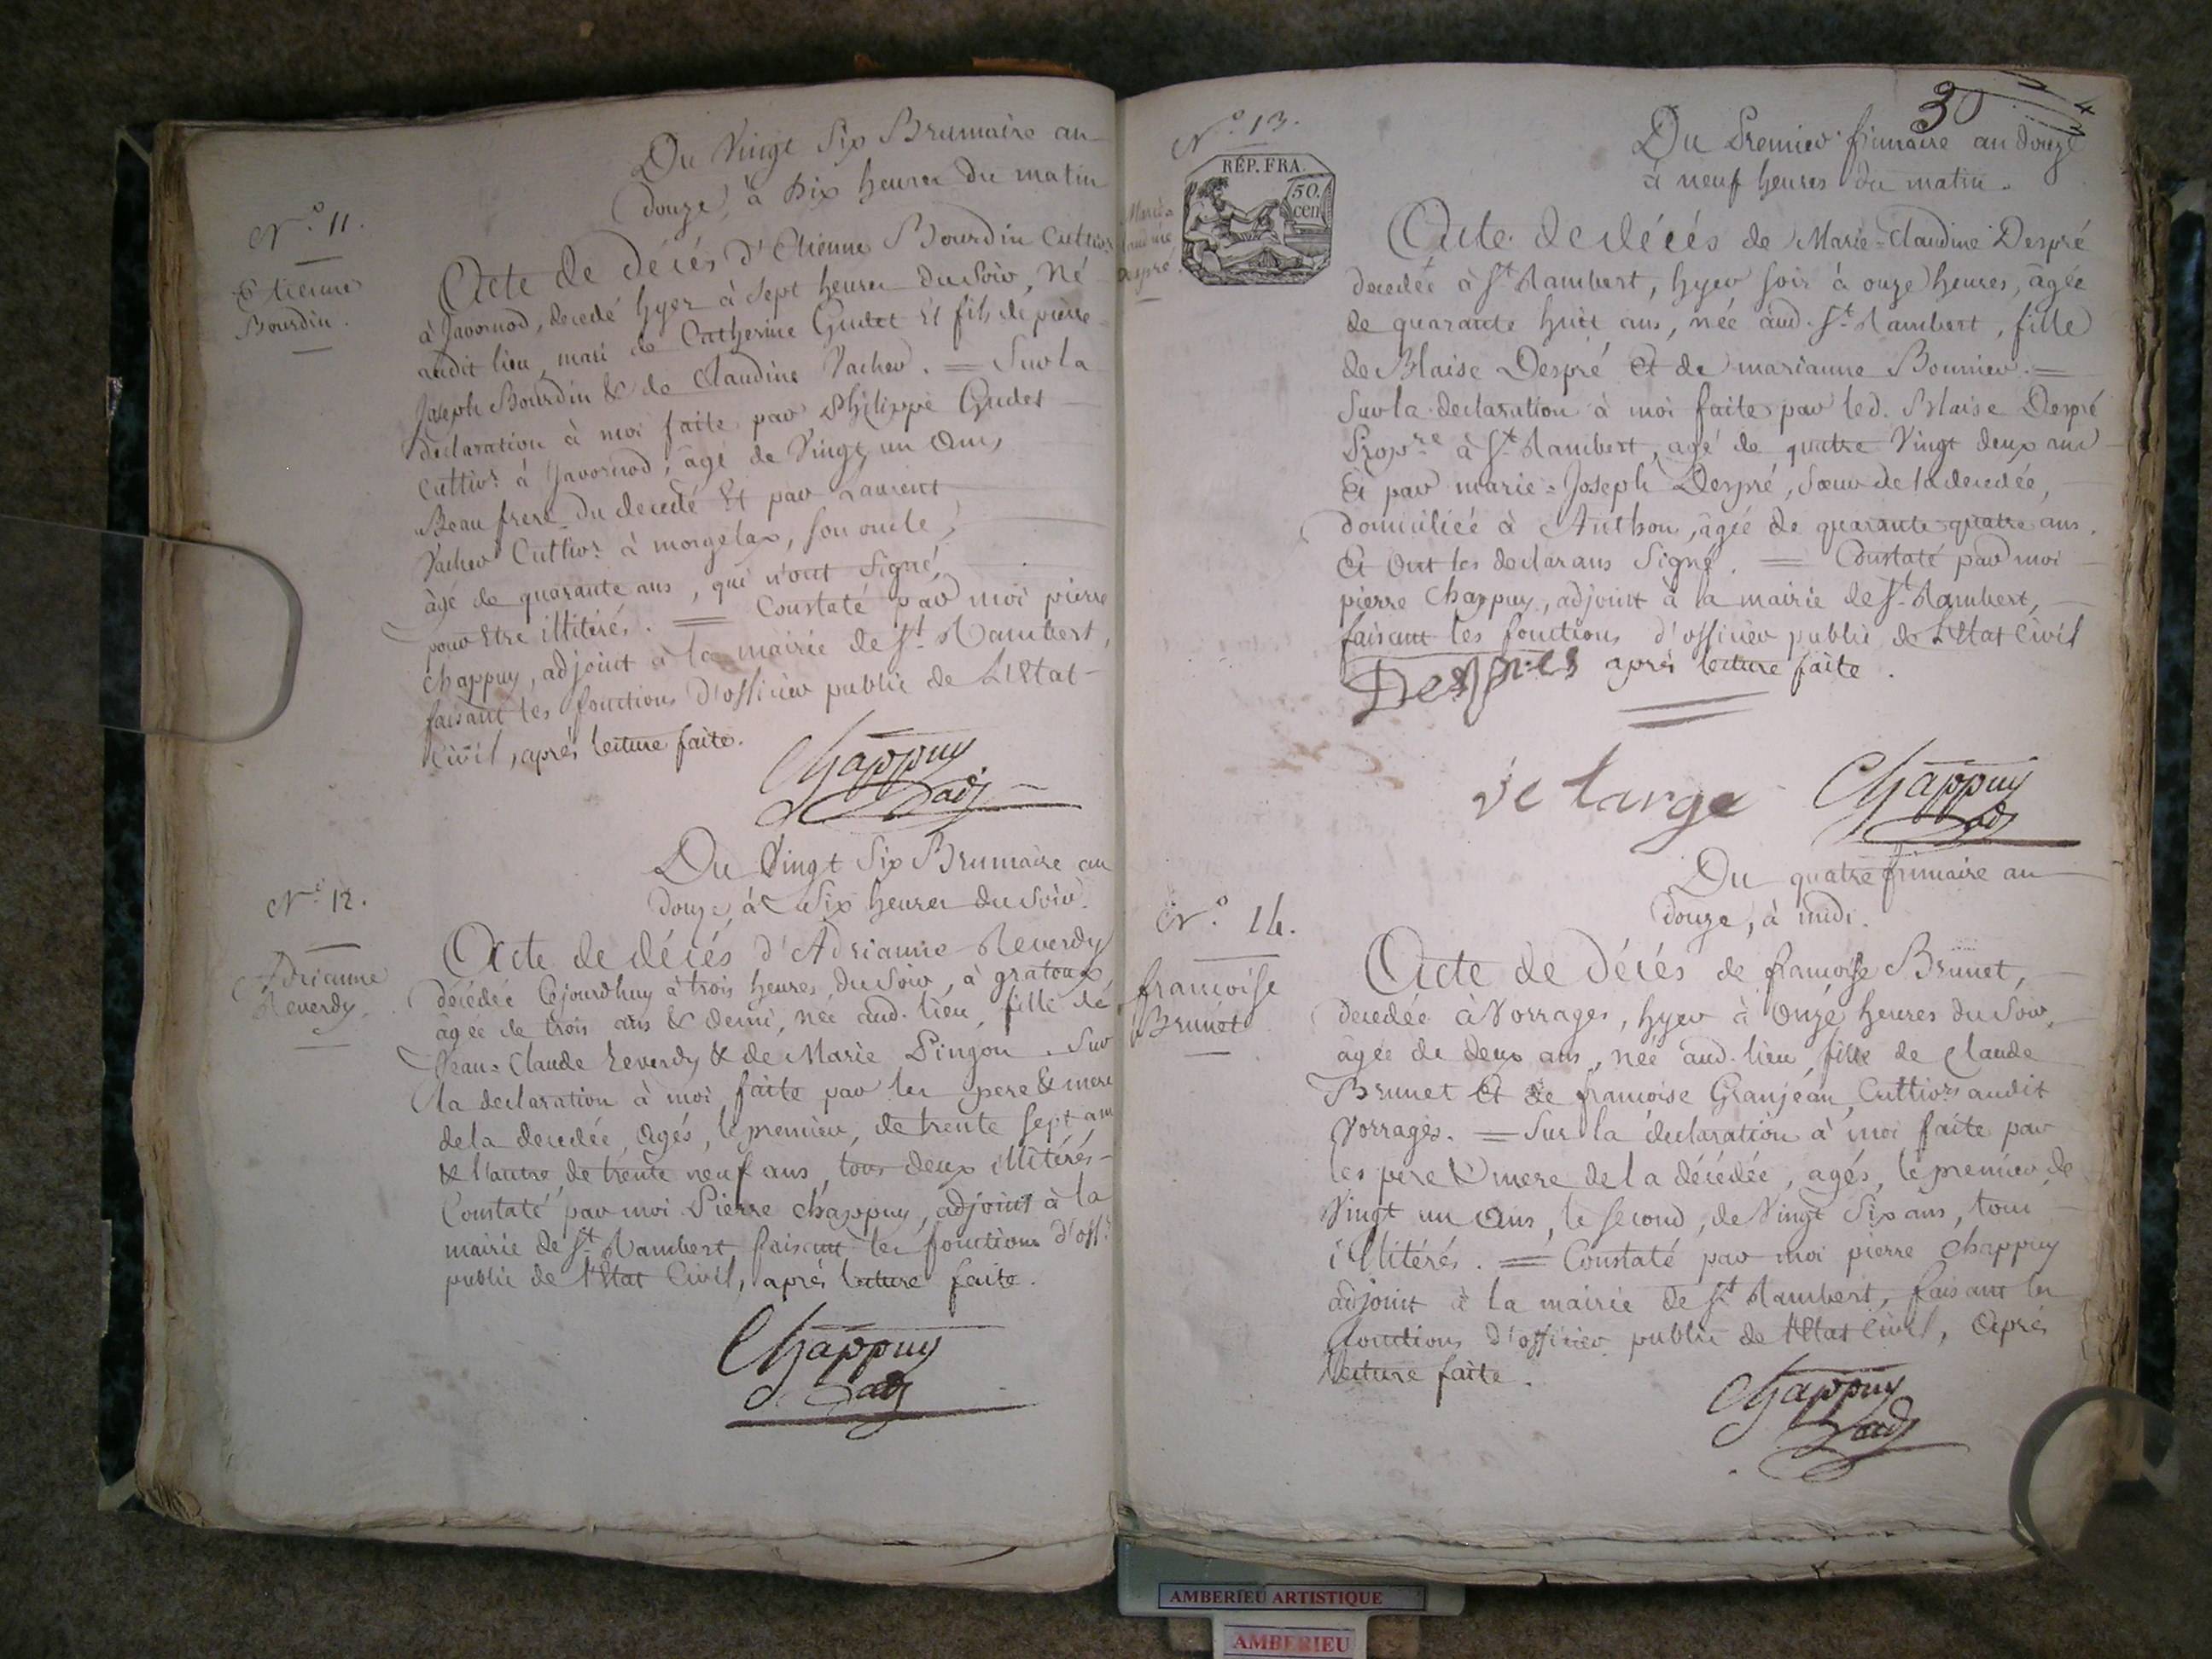 Du Vingt Six Brumaire an
douze, à Dix heures du matin
N.° 11.
Etienne
Bourdin.
Acte de décés d'Etienne Bourdin Cultivr
à Javornod, decedé hyer à Sept heures du Soir, Né
audit lieu, mari de Catherine Gudet Et fils de pierre
Joseph Bourdin & de Claudine Vacher. = Sur la
declaration à moi faite par Philippe Gudet
Cultivr à Javornod, âgé de Vingt un Ans,
Beau frere du decedé Et par Laurent
Vacher Cultivr à morgelas, son oncle,
âgé de quarante ans, qui n'ont Signé,
pour Etre illitérés. = Constaté par moi pierre
Chappuy, adjoint à la mairie de St Rambert,
faisant les fonctions d'officier public de L'Etat
Civil, aprés lecture faite.
Chappuy
adj
Du Vingt Six Brumaire an
douze, à Six heures du Soir.
N.° 12.
Adrianne
Reverdy.
Acte de décés d'Adrianne Reverdy
décédée Cejourdhuy à trois heures du Soir, à gratoux,
âgée de trois ans & demi, née aud. lieu, fille de
Jean-Claude Reverdy & de Marie Pingon. Sur
la declaration à moi faite par les pere & mere
de la decedée, agés, le premier, de trente sept ans
& l'autre, de trente neuf ans, tous deux illitérés
Constaté par moi Pierre Chappuy, adjoint à la
mairie de St Rambert, faisant les fonctions d'offr
public de l'Etat Civil, aprés lecture faite.
Chappuy
adj
30
N.° 13.
RÉP. FRA.
50.
cen
Marie
Claudine
Despré
Du Premier frimaire an douze
à neuf heures du matin.
Acte de décés de Marie-Claudine Despré
decedée à St Rambert, hyer soir à onze heures, âgée
de quarante huit ans, née aud. St Rambert, fille
de Blaise Despré Et de marianne Bournier. =
Sur la declaration à moi faite par led. Blaise Despré
Propre à St Rambert, agé de quatre Vingt deux ans
Et par marie-Joseph Despré, Sœur de la decedée,
domiciliée à Anthon, âgée de quarante-quatre ans.
Et Ont les declarans Signé. = Constaté par moi
pierre Chappuy, adjoint à la mairie de St Rambert,
faisant les fonctions d'officier public de L'Etat Civil
Despres aprés lecture faite.
de targe
Chappuy
adj
Du quatre frimaire an
douze, à midi.
N.° 14.
francoise
Brunet
Acte de décés de francoise Brunet,
decedée à Vorrages, hyer à Onze heures du Soir,
âgée de deux ans, née aud. lieu, fille de Claude
Brunet Et de francoise Granjean, Cultivrs audit
Vorrages. = Sur la declaration à moi faite par
les pere & mere de la décédée, agés, le premier, de
Vingt un Ans, le second, de Vingt Six ans, tous
illitérés. = Constaté par moi pierre Chappuy
adjoint à la mairie de St Rambert, faisant les
fonctions d'officier public de l'Etat Civil, Aprés
lecture faite.
Chappuy
adj
AMBERIEU ARTISTIQUE
AMBERIEU